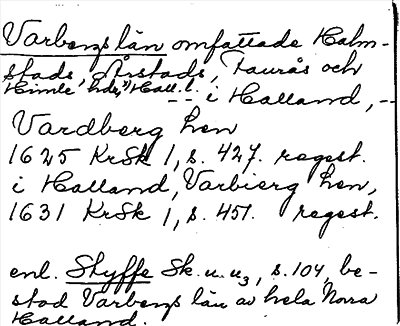 Varbergs län omfattade Halm-
stads, Årstads, Faurås och
Himle hde, Hall. l.
-- i Halland, --
Vardberg Len
1625 KrSk 1, s. 427. regest.
i Halland, Varbierg Len,
1631 KrSk 1, s. 451. regest.
enl. Styffe Sk. u. u3, s. 104, be-
stod Varbergs län av hela Norra
Halland.